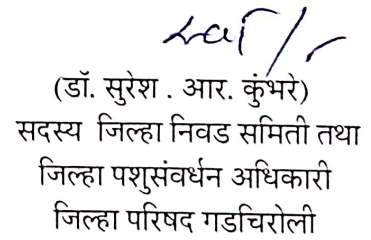 (डॉ. सुरेश . आर. कुंभरे)
सदस्य जिल्हा निवड समिती तथा
जिल्हा पशुसंवर्धन अधिकारी
जिल्हा परिषद गडचिरोली